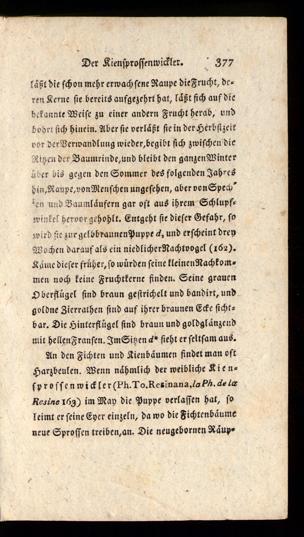 Der Kiensprossenwickler. 377
läßt die schon mehr erwachsene Raupe die Frucht, de-
ren Kerne sie bereits aufgezehrt hat, läßt sich auf die
bekannte Weise zu einer andern Frucht herab, und
bohrt sich hinein. Aber sie verläßt sie in der Herbstzeit
vor der Verwandlung wieder, begibt sich zwischen die
Ritzen der Baumrinde, und bleibt den ganzen Winter
über bis gegen den Sommer des folgenden Jahres
hin, Raupe, von Menschen ungesehen, aber von Spech-
ten und Baumläufern gar oft aus ihrem Schlupf-
winkel hervor gehohlt. Entgeht sie dieser Gefahr, so
wird sie zur gelbbraunen Puppe d, und erscheint drey
Wochen darauf als ein niedlicher Nachtvogel (162).
Käme dieser früher, so würden seine kleinen Nachkom-
men noch keine Fruchtkerne finden. Seine grauen
Oberflügel sind braun gestrichelt und bandirt, und
goldne Zierrathen sind auf ihrer braunen Ecke sicht-
bar. Die Hinterflügel sind braun und goldglänzend
mit hellen Fransen. Im Sitzen d* sieht er seltsam aus.
An den Fichten und Kienbäumen findet man oft
Harzbeulen. Wenn nämlich der weibliche Kien-
sprossenwickler (Ph. To. Resinana, la Ph. de la
Resine 163) im May die Puppe verlassen hat, so
leimt er seine Eyer einzeln, da wo die Fichtenbäume
neue Sprossen treiben, an. Die neugebornen Räup-